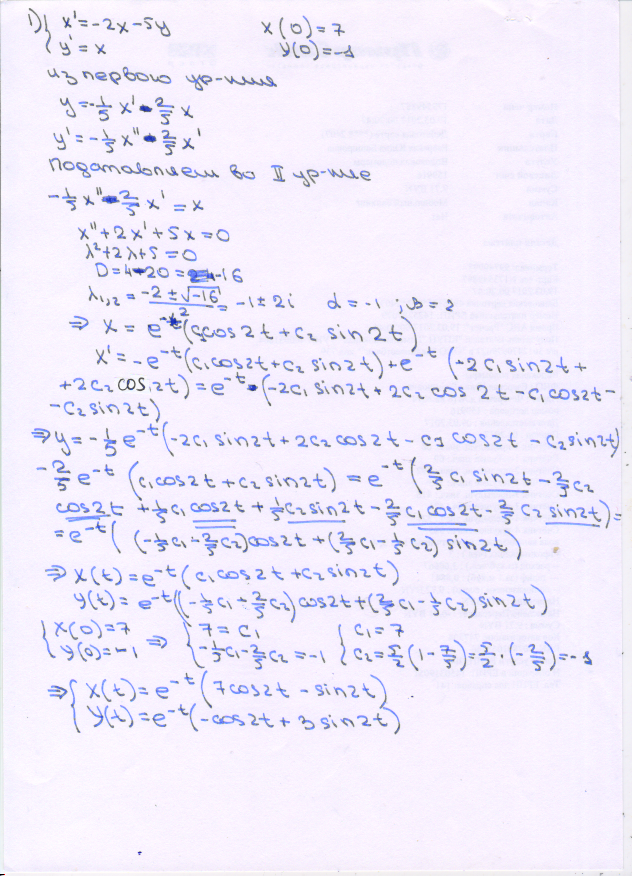 1) { x' = -2x - 5y    x(0) = 7
{ y' = x    y(0) = -1
из первого ур-ния
y = -1/5 x' - 2/5 x
y' = -1/5 x'' - 2/5 x'
Подставляем во II ур-ние
-1/5 x'' - 2/5 x' = x
x'' + 2x' + 5x = 0
λ² + 2λ + 5 = 0
D = 4 - 20 = -16
λ1,2 = (-2 ± √-16)/2 = -1 ± 2i    α = -1 ; β = 2
⇒ x = e^-t (c1 cos 2t + c2 sin 2t)
x' = -e^-t (c1 cos2t + c2 sin2t) + e^-t (-2c1 sin2t +
+ 2c2 cos 2t) = e^-t · (-2c1 sin2t + 2c2 cos 2t - c1 cos2t -
- c2 sin2t)
⇒ y = -1/5 e^-t (-2c1 sin2t + 2c2 cos2t - c1 cos2t - c2 sin2t)
- 2/5 e^-t (c1 cos2t + c2 sin2t) = e^-t (2/5 c1 sin2t - 2/5 c2
cos2t + 1/5 c1 cos2t + 1/5 c2 sin2t - 2/5 c1 cos2t - 2/5 c2 sin2t) =
= e^-t ( (-1/5 c1 - 2/5 c2) cos2t + (2/5 c1 - 1/5 c2) sin2t)
⇒ x(t) = e^-t (c1 cos2t + c2 sin2t)
y(t) = e^-t ((-1/5 c1 + 2/5 c2) cos2t + (2/5 c1 - 1/5 c2) sin2t)
{ x(0) = 7 ⇒ { 7 = c1    { c1 = 7
{ y(0) = -1    { -1/5 c1 - 2/5 c2 = -1    { c2 = 5/2 (1 - 7/5) = 5/2 · (-2/5) = -1
⇒ { x(t) = e^-t (7cos2t - sin2t)
{ y(t) = e^-t (-cos2t + 3 sin2t)